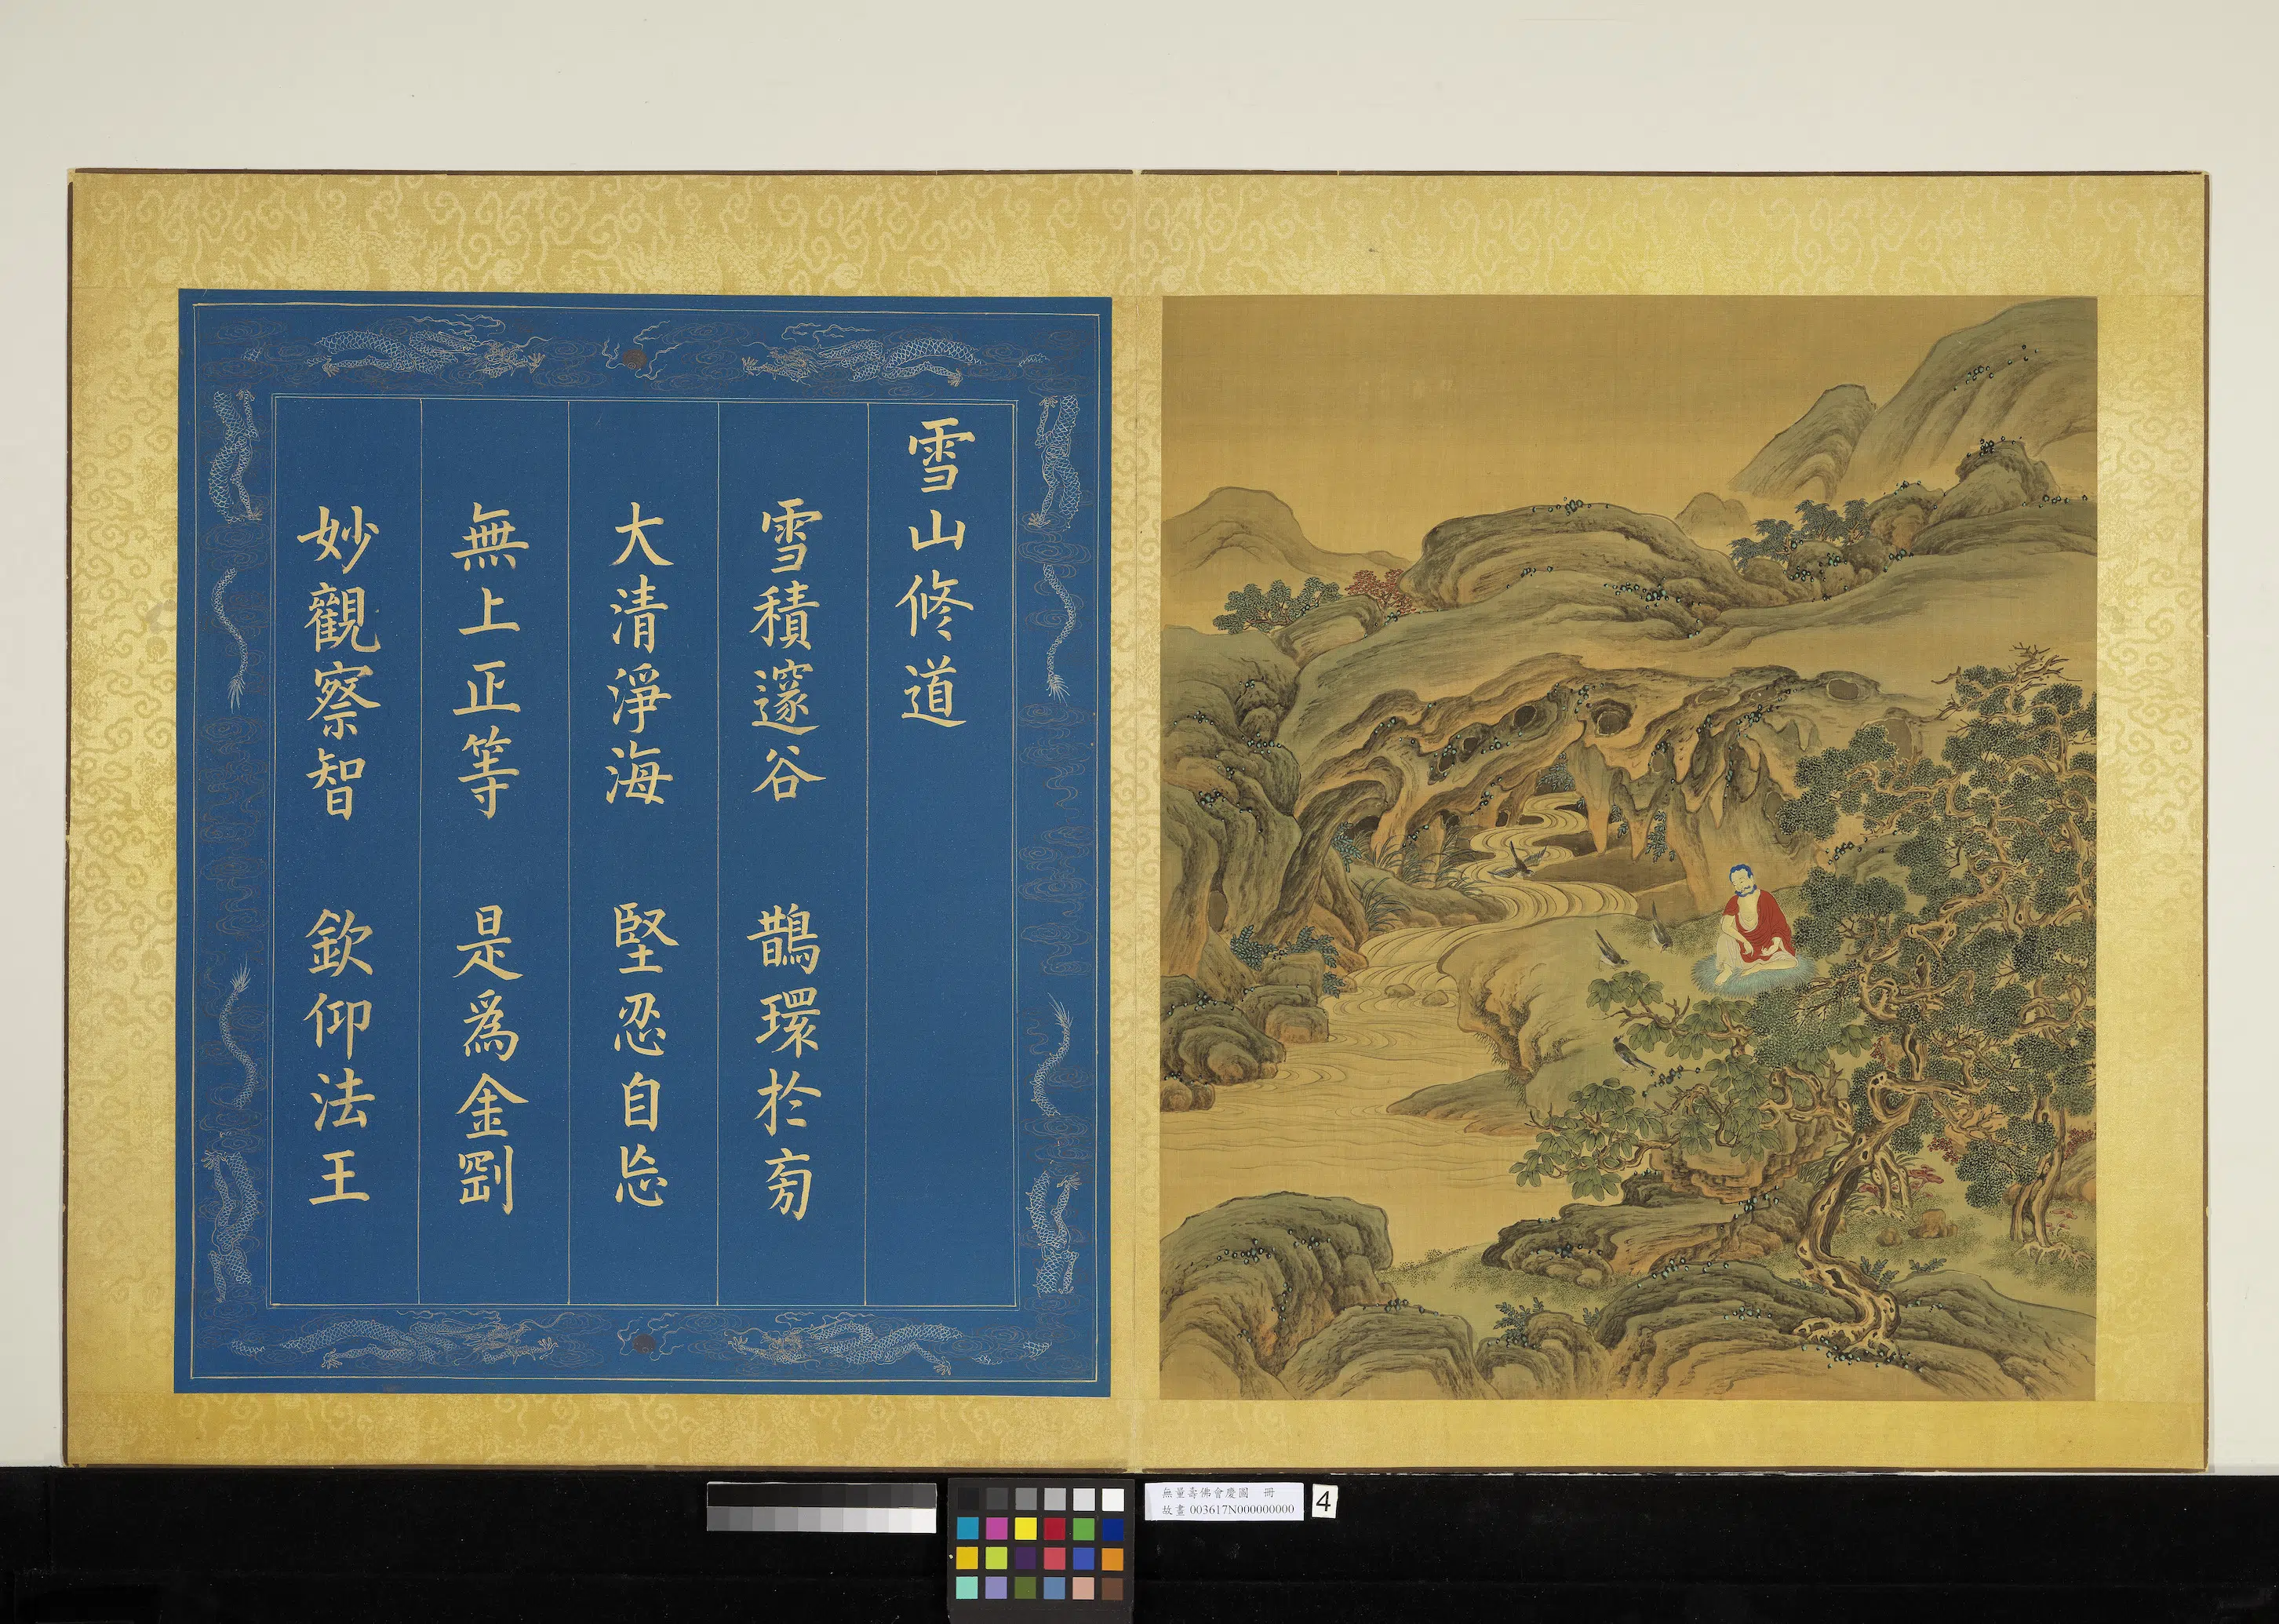 雪山修道
雪積邃谷 鵲環於旁
大清淨海 堅忍自忘
無上正等 是為金剛
妙觀察智 欽仰法王
無量壽佛會慶圖 冊
故畫 003617N000000000
4